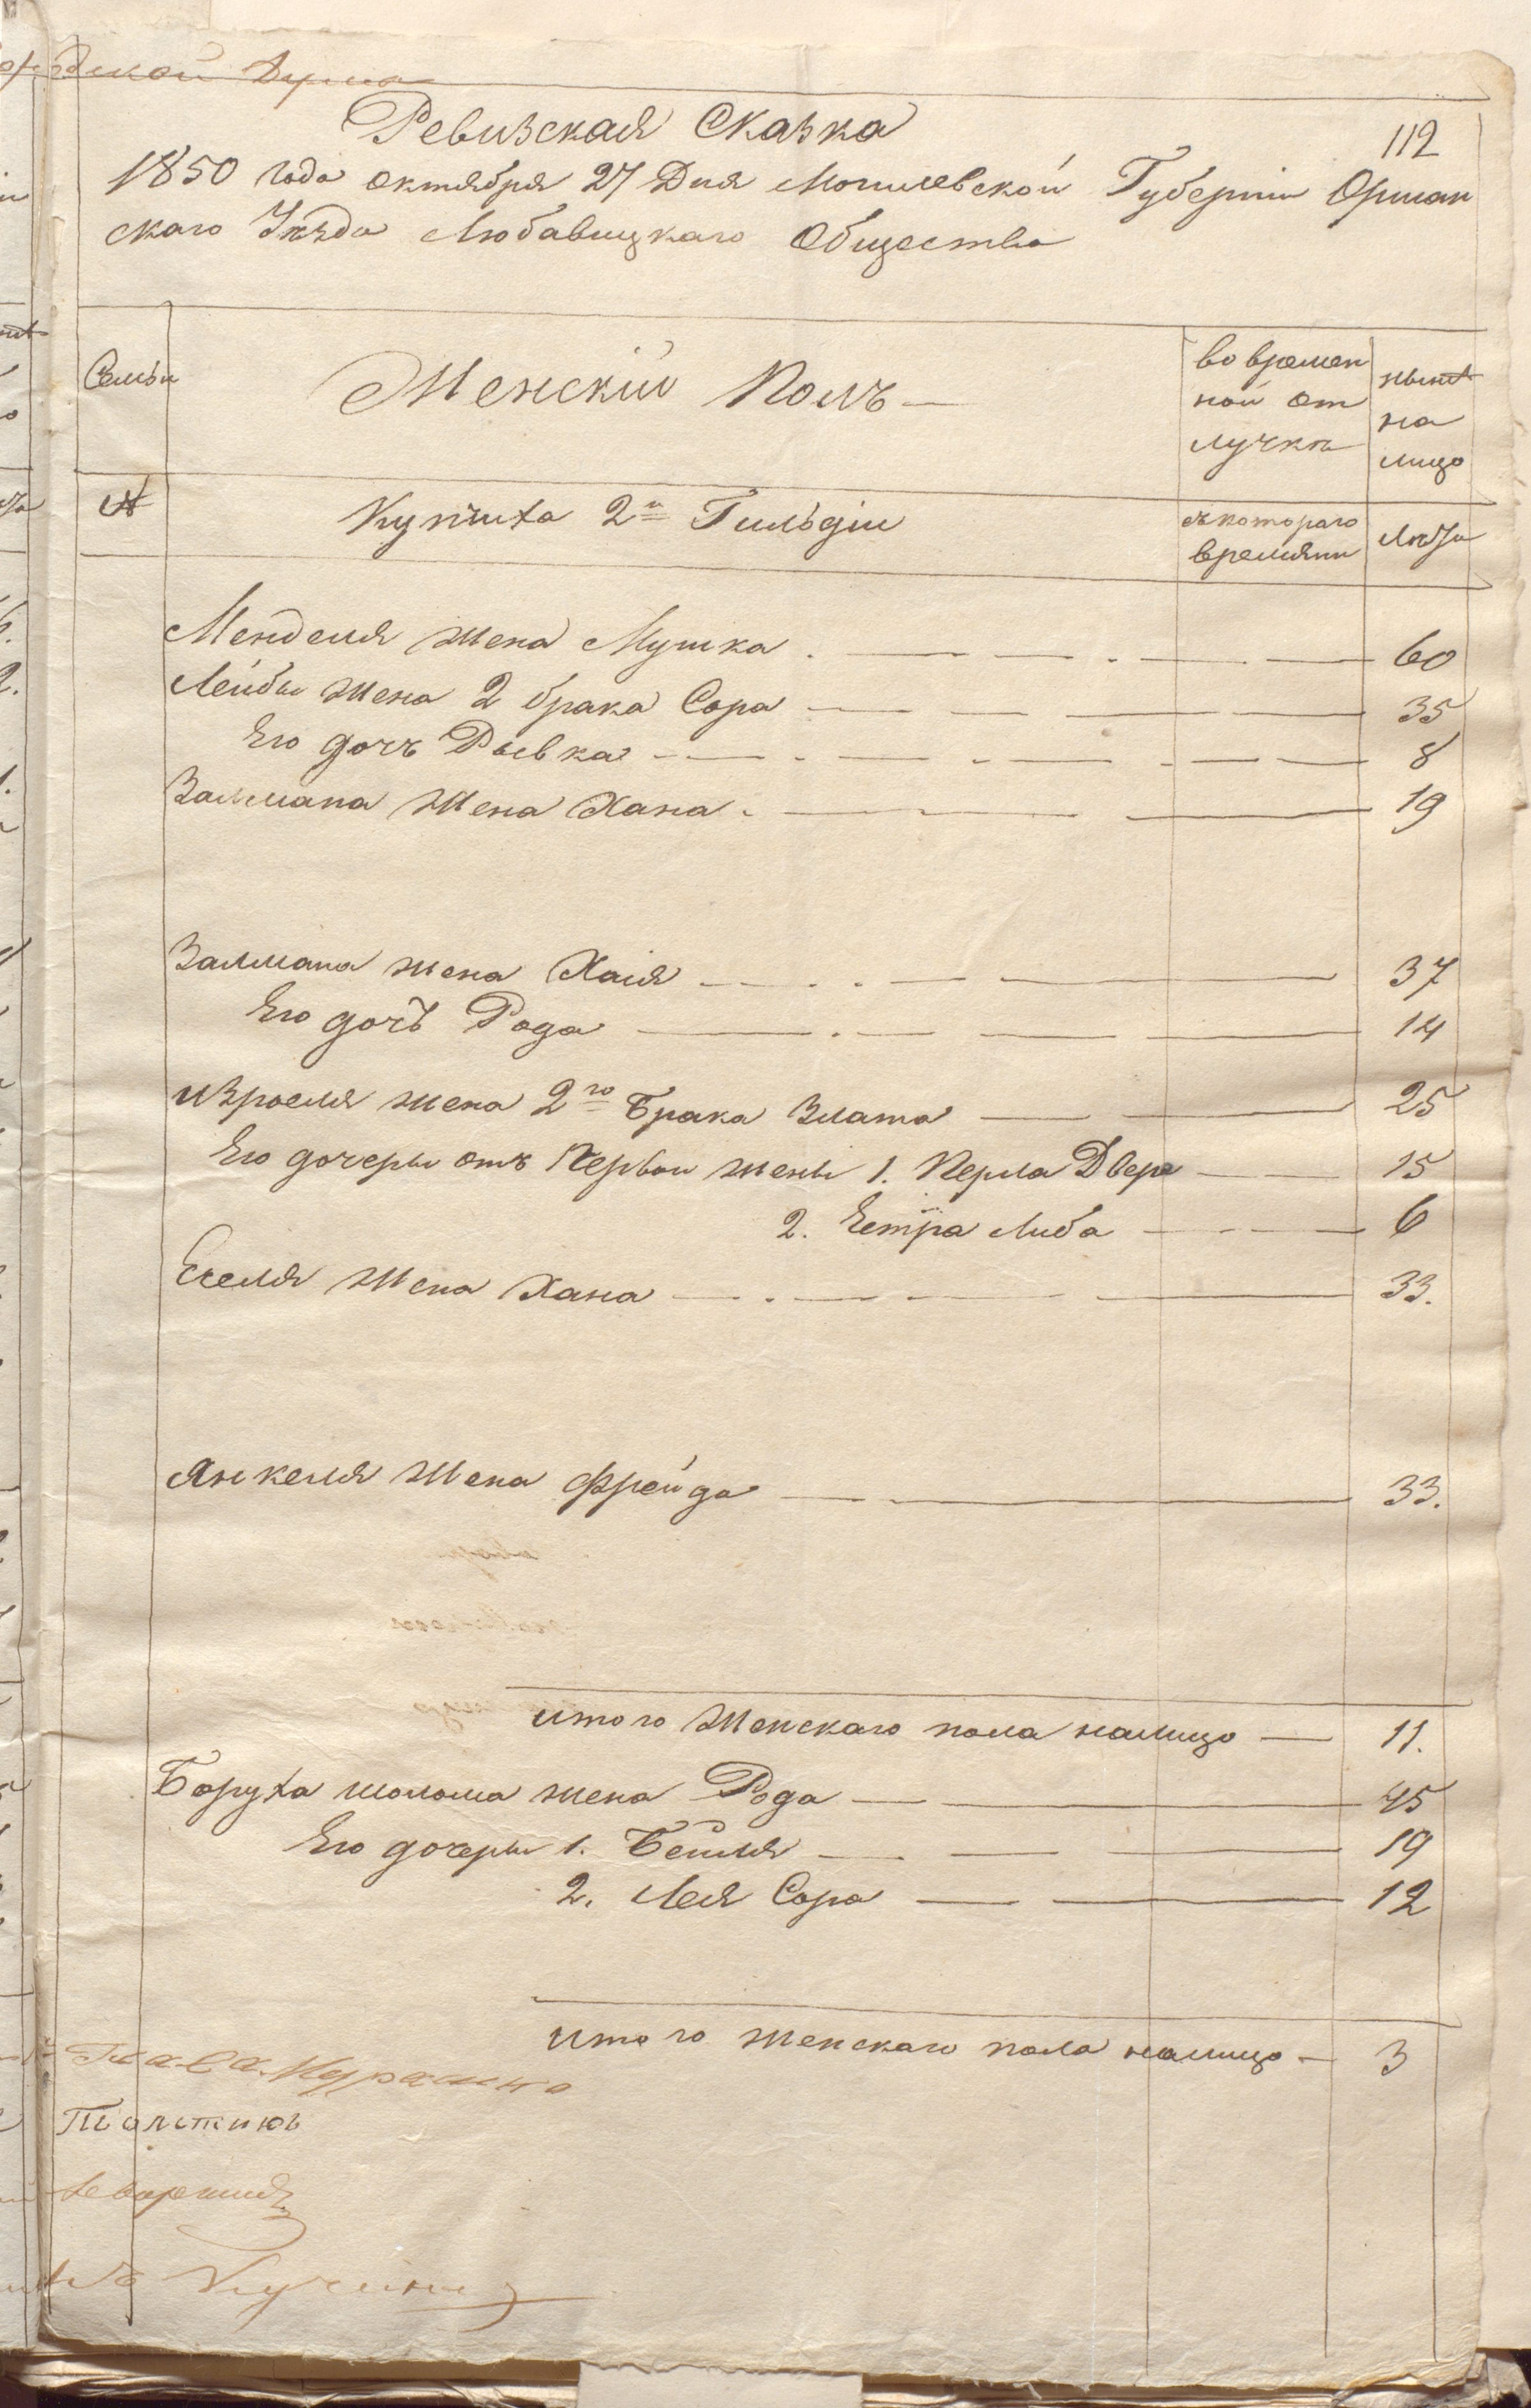 Ревизская Сказка
112
1850 года октября 27 Дня Могилевской Губернiи Оршан
скаго Уѣзда Любавицкаго Общества
Семьи
Женскiй Полъ —
во времен
ной от
лучкѣ
нынѣ
на
лицо
№
Купчиха 2й Гильдiи
съ котораго
времяни
Лѣта
Менделя жена Мушка 60
Лейбы жена 2 брака Сора 35
Его дочъ Рывка 8
Залмана Жена Хана 19
Залмана жена Хаiя 37
Его дочъ Рода 14
Израеля жена 2го Брака Злата 25
Его дочеры отъ Первой жены 1. Перла Двера 15
2. Етра Либа 6
Екеля Жена Хана 33.
Янкеля Жена Фрейда 33.
итого Женскаго пола налицо — 11.
Боруха шолома жена Рода 45
Его дочеры 1. Бейля 19
2. Лея Сора 12
итого женскаго пола налицо — 3